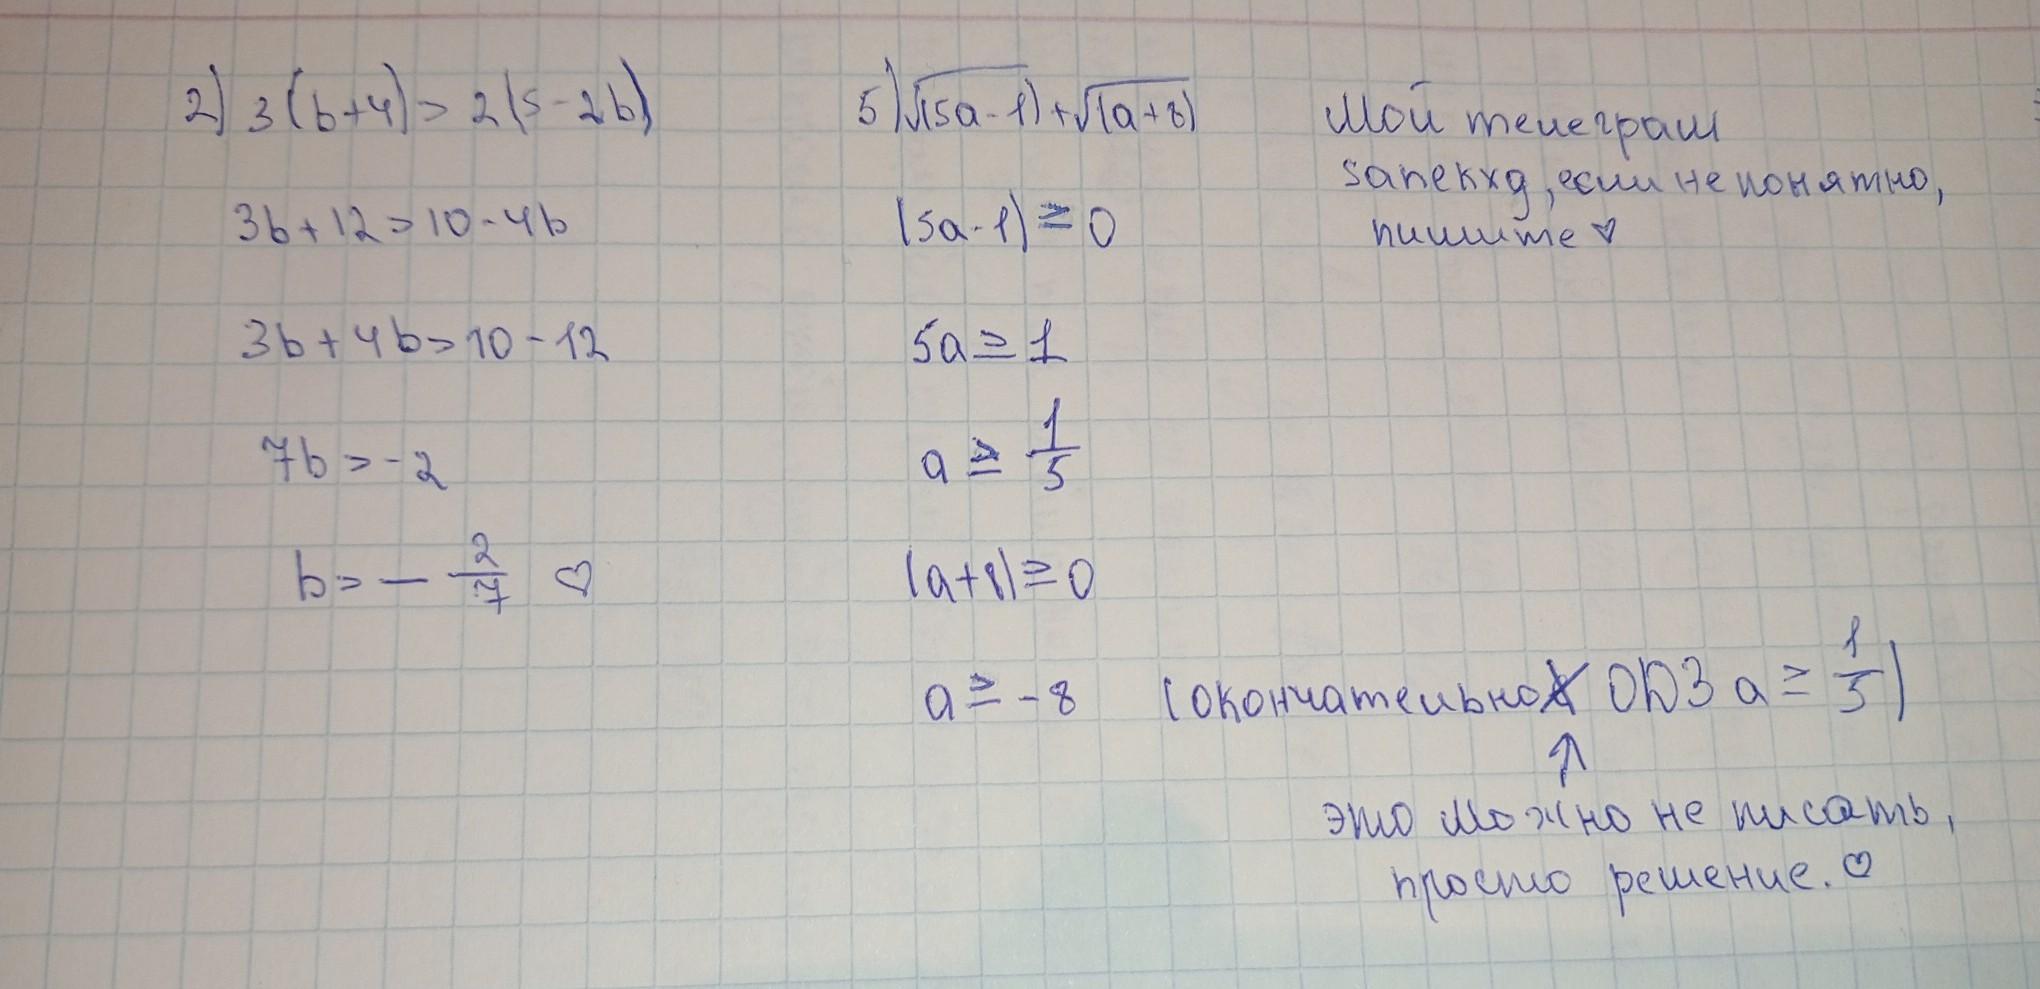 2) 3(b+4)>2(5-2b)
3b+12>10-4b
3b+4b>10-12
7b>-2
b>-2/7 ♡
5) √(5a-1)+√(a+8)
(5a-1)≥0
5a≥1
a≥1/5
(a+8)≥0
a≥-8 (окончательно ОДЗ a≥1/5)
↑
это можно не писать,
просто решение. ♡
Мой телеграм
, если не понятно,
пишите ♡